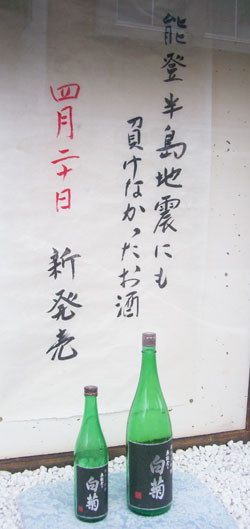 能登半島地震にも
負けなかったお酒
四月二十日
新発売
白菊
白菊